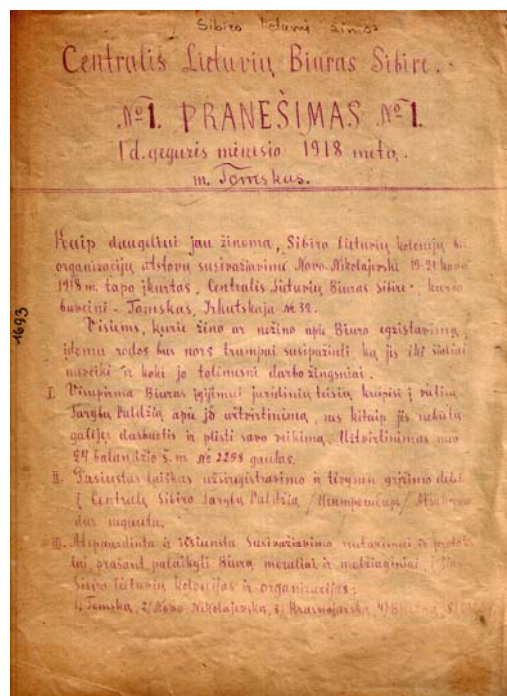 Sibiro lietuvi žinos
Centralis Lietuvių Biuras Sibire.
№1. PRANEŠIMAS №1.
1 d. gegužės mėnesio 1918 metų.
m. Tomskas.
Kaip daugeliui jau žinoma, Sibiro lietuvių kolonijų bi
organizacijų atstovų susivažiavime Novo-Nikolajevske 19-21 kovo
1918 m. tapo įkurtas, Centralis Lietuvių Biuras Sibire, kurio
buveinė - Tomskas, Irkutskaja № 32.
Visiems, kurie žino ar nežino apie Biuro egzistavimą,
įdomu rodos bus nors trumpai susipažinti ką jis iki šioliai
nuveikė ir koki jo tolimesni darbo žingsniai.
I. Visupirma Biuras įgijimui juridinių teisių kreipėsi į vietinę
Tarybų Valdžią apie jo užtvirtinimą, nes kitaip jis nebūtų
galėjęs darbuotis ir plėsti savo veikimą. Užtvirtinimas nuo
24 balandžio š. m. № 2298 gautas.
II. Pasiųstas laiškas užsiregistravimo ir tėvynėn grįžimo dėlei
į Centralę Sibiro Tarybų Valdžią / / Atsakymo
dar negauta.
III. Atspausdinta ir išsiunta Susivažiavimo nutarimai ir proto
lai prašant palaikyti Biurą moraliai ir medžiaginiai,
Sibiro lietuvių kolonijas ir organizacijas:
1/ Tomską, 2/ Novo-Nikolajevską, 3/ Krasnojarską, 4/
1693